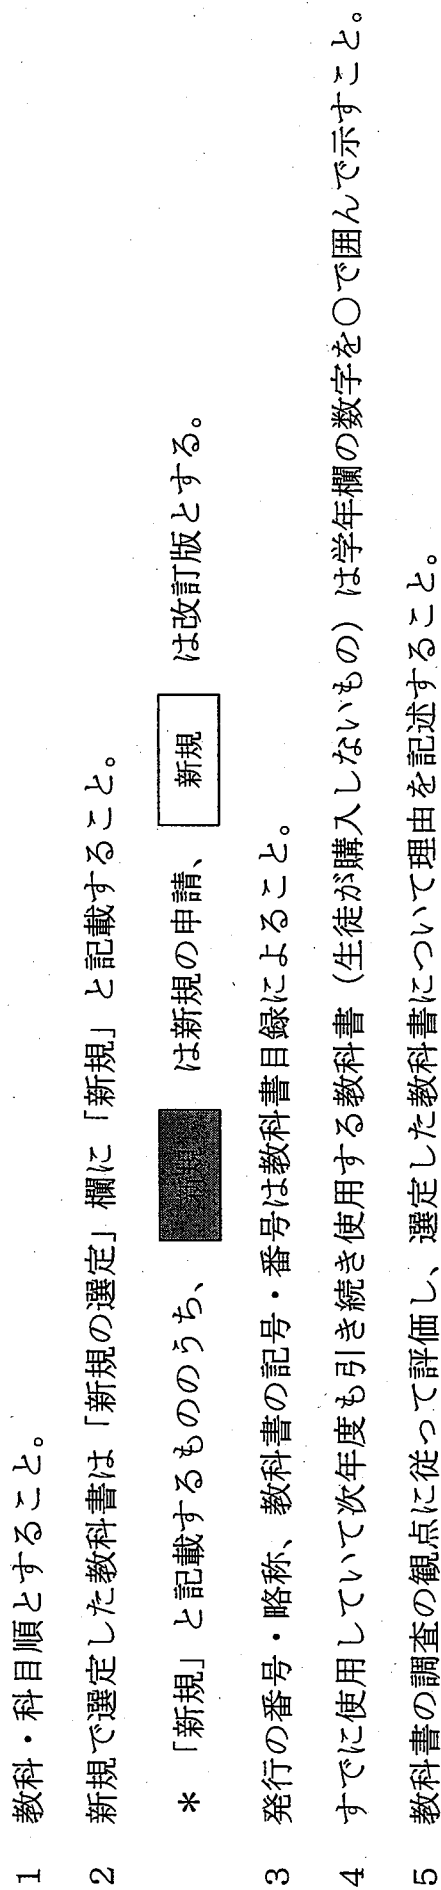 1 教科・科目順とすること。
2 新規で選定した教科書は「新規の選定」欄に「新規」と記載すること。
＊ 「新規」と記載するもののうち、 は新規の申請、 新規 は改訂版とする。
3 発行の番号・略称、教科書の記号・番号は教科書目録によること。
4 すでに使用していて次年度も引き続き使用する教科書（生徒が購入しないもの）は学年欄の数字を○で囲んで示すこと。
5 教科書の調査の観点に従って評価し、選定した教科書について理由を記述すること。